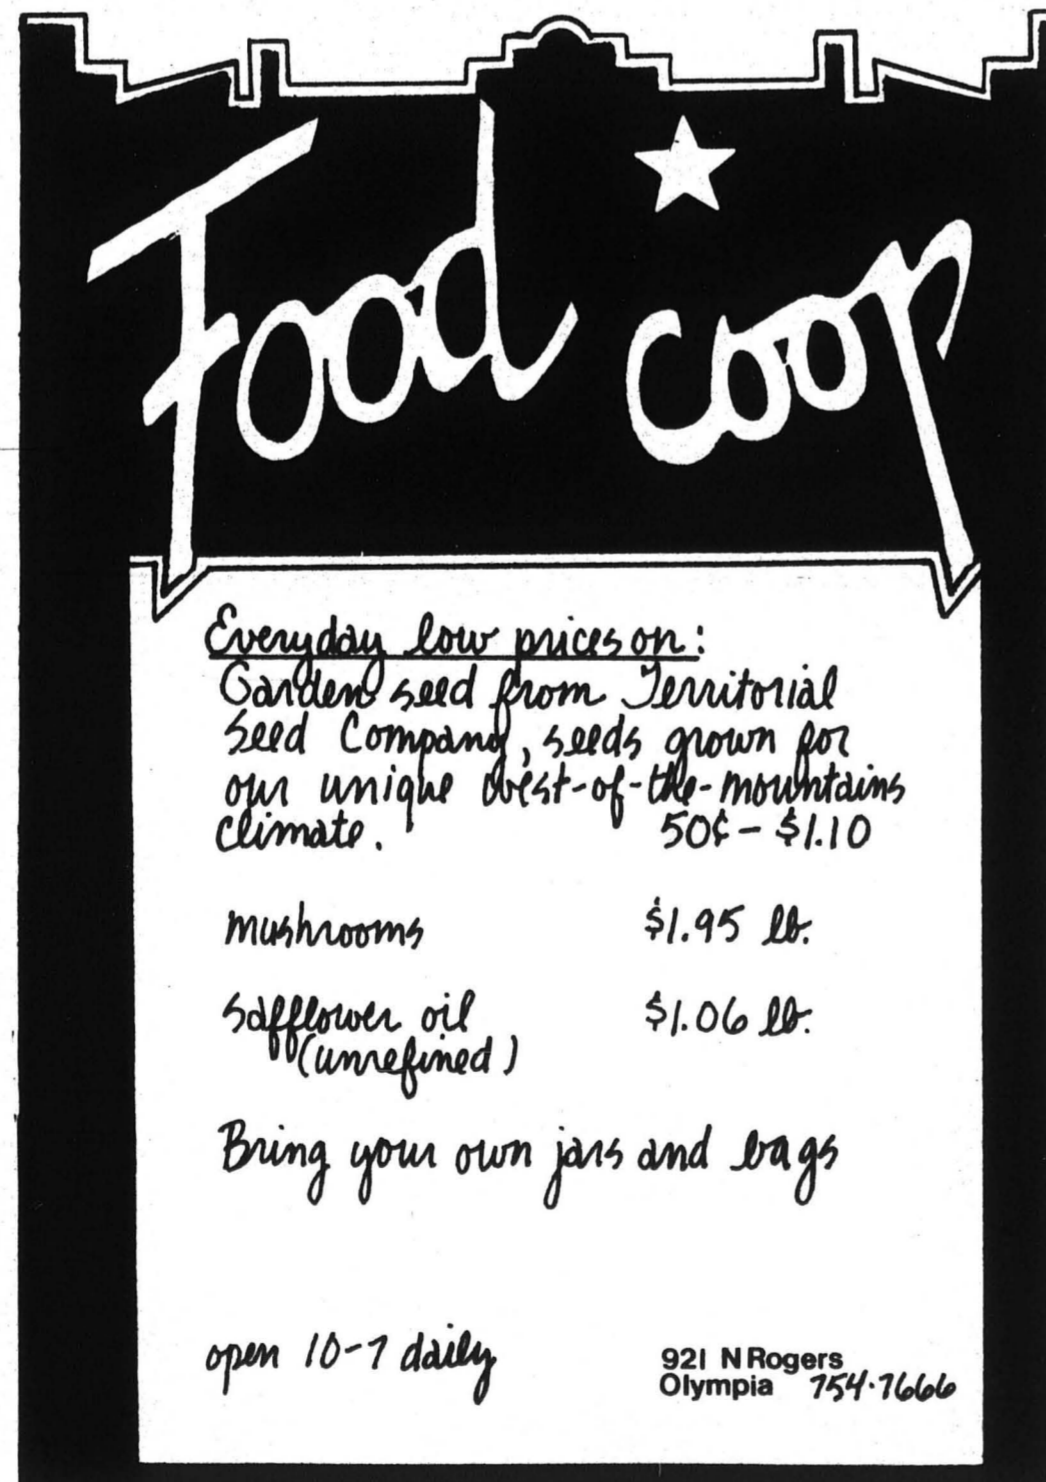 Food coop
Everyday low prices on:
Garden seed from Territorial
Seed Company, seeds grown for
our unique west-of-the-mountains
climate. 50¢ - $1.10
mushrooms $1.95 lb.
safflower oil $1.06 lb.
(unrefined)
Bring your own jars and bags
open 10-7 daily
921 N Rogers
Olympia 754-7666